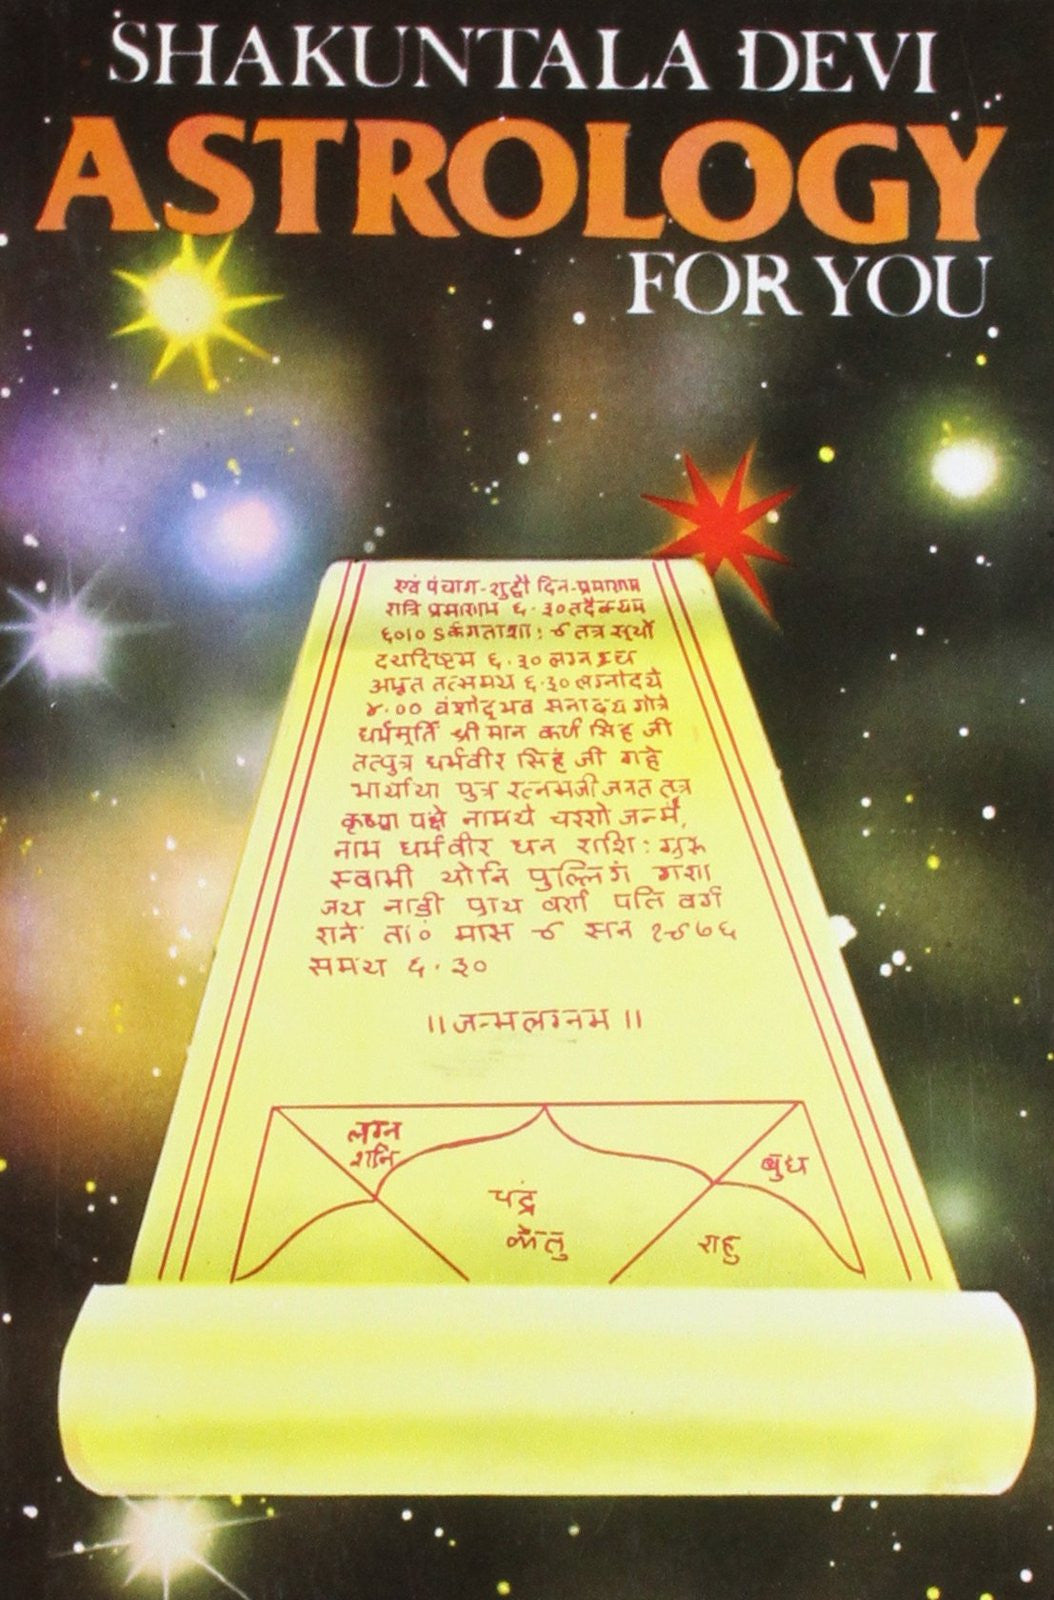 SHAKUNTALA DEVI
ASTROLOGY
FOR YOU
एवं पंचाग-शुद्धौ दिन-प्रमाणम
रात्रि प्रमाणम ६.३०
६०।० तत्र सूर्यो
६.३० लग्न
तत्समय ६.३० लग्नोदये
४.०० वंशोद्भव सनाढ्य गोत्रे
धर्ममूर्ति श्री मान कर्ण सिंह जी
तत्पुत्र धर्मवीर सिंह जी गहे
पुत्र तत्र
कृष्ण पक्षे नामये चरणे जन्म,
नाम धर्मवीर धन राशि: गुरू
स्वामी योनि पुल्लिगं गण
नाडी वर्ण पति वर्ग
ता० मास ९ सन १९७६
समय ६.३०
॥ जन्म लग्नम ॥
लग्न
शनि
बुध
चंद्र
केतु
राहु